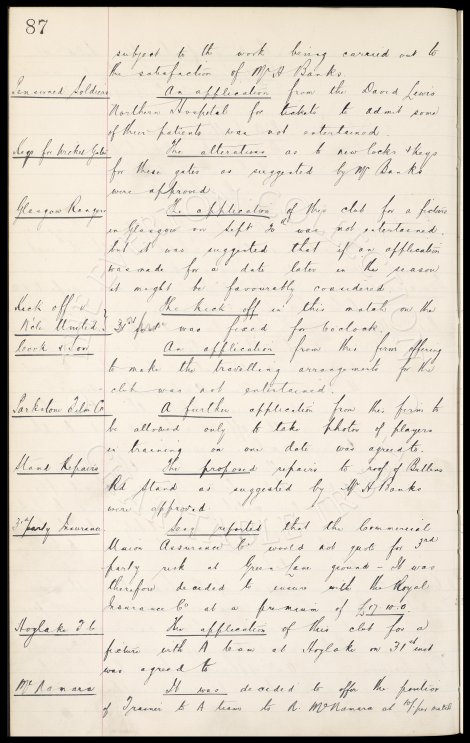 87
subject to the work being carried out to
the satisfaction of Mr A Banks.
Wounded Soldiers An application from the David Lewis
Northern Hospital for tickets to admit some
of their patients was not entertained.
Keys for Wicket Gates The alterations as to new locks & keys
for these gates as suggested by Mr Banks
were approved
Glasgow Rangers The application of this club for a fixture
in Glasgow on Sept 30th was not entertained
but it was suggested that if an application
was made for a date later in the season
it might be favourably considered
Kick off v The kick off in this match on the
N'cle United 31st was fixed for 6 o'clock.
Cook & Son An application from this firm offering
to make the travelling arrangements for the
club was not entertained.
Parkstone Film Co A further application from this firm to
be allowed only to take photos of players
in training on one date was agreed to.
Stand Repairs The proposed repairs to roof of Bullens
Rd Stand as suggested by Mr A Banks
were approved
3rd party Insurance Secy reported that the Commercial
Union Assurance Co would not quote for 3rd
party risk at Green Lane ground - It was
therefore decided to insure with the Royal
Insurance Co at a premium of
Hoylake F.C The application of this club for a
fixture with A team at Hoylake on 31st inst
was agreed to
McNamara It was decided to offer the position
of Trainer to A team to R. McNamara at 10/- per match